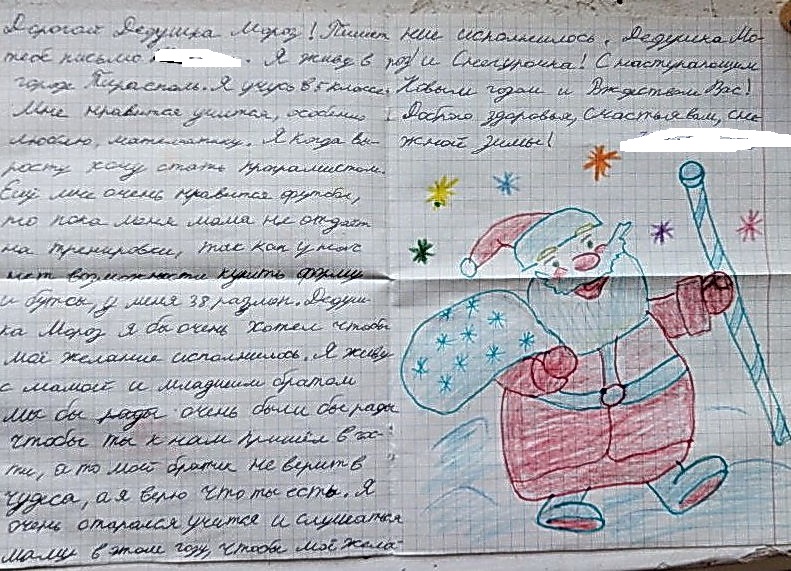 Дорогой Дедушка Мороз! Пишет
тебе письмо
. Я живу в
городе Тирасполь. Я учусь в 5 классе.
Мне нравится учится, особенно
люблю, математику. Я когда вы-
росту хочу стать програмистом.
Ещё мне очень нравится футбол,
но пока меня мама не отдаёт
на тренировки, так как у нас
нет возможности купить форму
и бутсы, у меня 38 размер. Дедуш-
ка Мороз я бы очень хотел чтобы
моё желание исполнилось. Я живу
с мамой и младшим братом
мы бы рады очень были бы рады
чтобы ты к нам пришёл в гос-
ти, а то мой братик не верит в
чудеса, а я верю что ты есть. Я
очень старался учится и слушаться
маму в этом году, чтобы моё жела-
ние исполнилось. Дедушка Мо-
роз и Снегурочка! С наступающим
Новым годом и Рждеством Вас!
Доброго здоровья, счастья вам, сне-
жной зимы!